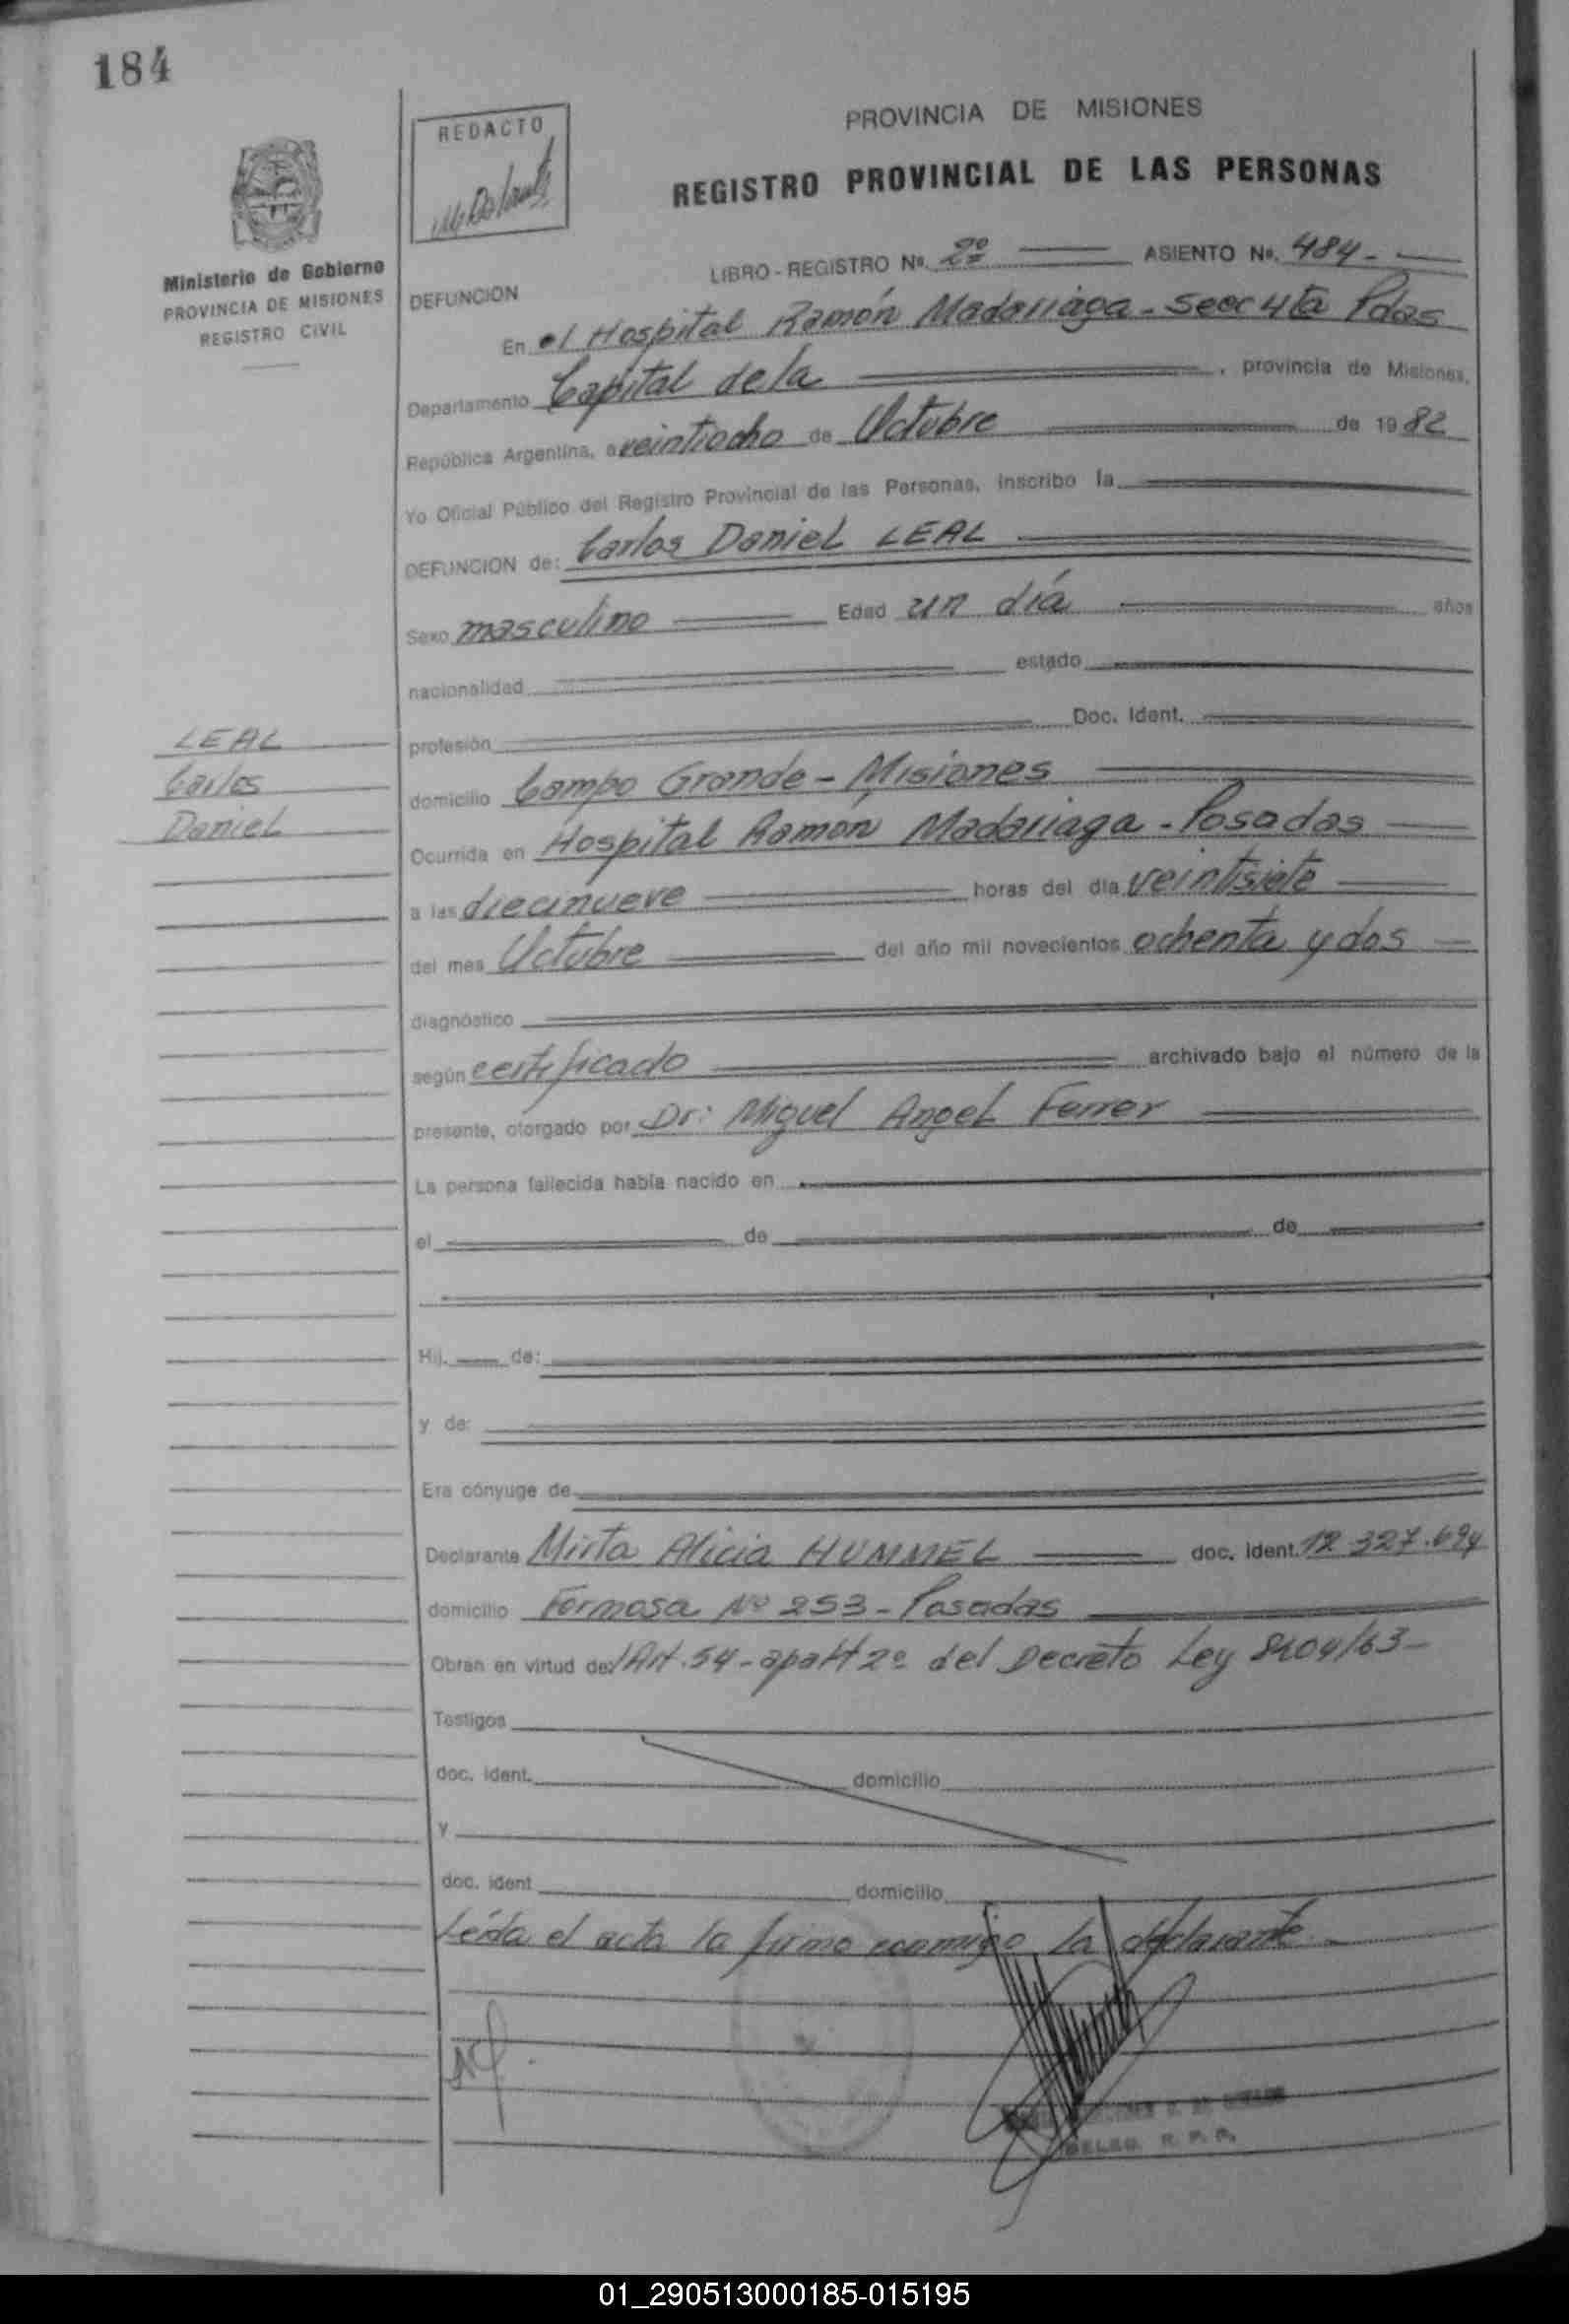 184
REDACTO
PROVINCIA DE MISIONES
REGISTRO PROVINCIAL DE LAS PERSONAS
Ministerio de Gobierno
PROVINCIA DE MISIONES
REGISTRO CIVIL
LIBRO - REGISTRO Nº. 2º ASIENTO Nº. 484-
DEFUNCION
En el Hospital Ramón Madariaga - Secc 4ta Pdas
Departamento Capital de la , provincia de Misiones,
República Argentina, a veintiocho de Octubre de 1982
Yo Oficial Público del Registro Provincial de las Personas, inscribo la
DEFUNCION de: Carlos Daniel LEAL
Sexo masculino Edad un día años
nacionalidad estado
profesión Doc. Ident.
LEAL
Carlos
Daniel
domicilio Campo Grande - Misiones
Ocurrida en Hospital Ramón Madariaga - Posadas
a las diecinueve horas del día veintisiete
del mes Octubre del año mil novecientos ochenta y dos
diagnóstico
según certificado archivado bajo el número de la
presente, otorgado por Dr: Miguel Angel Ferrer
La persona fallecida había nacido en
el de de
Hij. de:
y de:
Era cónyuge de
Declarante Mirta Alicia HUMMEL doc. ident. 12.327.694
domicilio Formosa Nº 253 - Posadas
Obran en virtud del Art. 54 - apart 2º del Decreto Ley 8204/63-
Testigos
doc. ident. domicilio
y
doc. ident domicilio
Leída el acta la firma conmigo la declarante.-
DELEG. R. P. P.
01_290513000185-015195